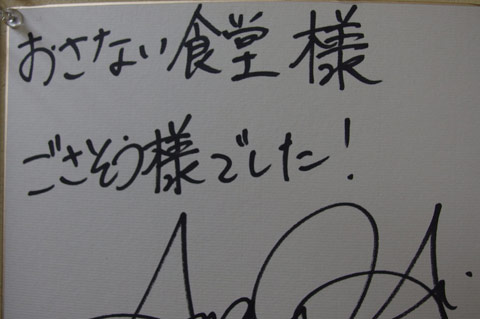 おさない食堂様
ごさそう様でした！